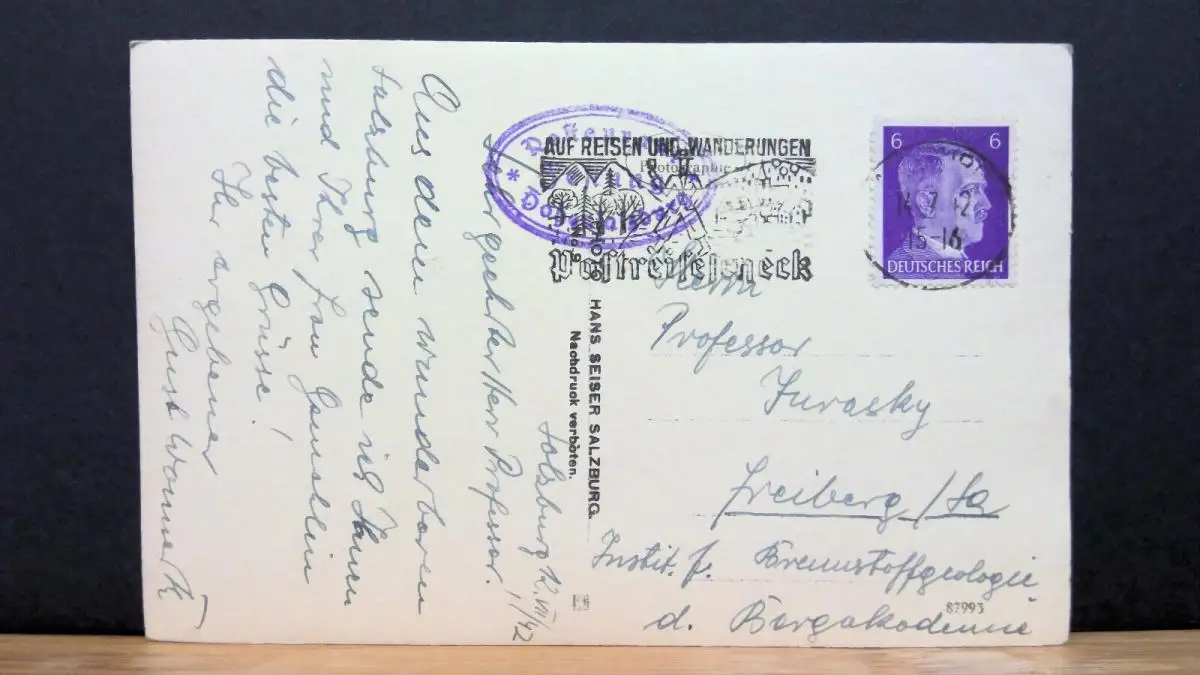 Salzburg 12.VII/42
Sehr geehrter Herr Professor!
Aus dem wunderbaren
Salzburg sende ich Ihnen
und Ihrer Frau Gemahlin
die besten Grüsse!
Ihr ergebener
HANS SEISER SALZBURG.
Nachdruck verboten.
AUF REISEN UND WANDERUNGEN
Postreisescheck
Photographie
6 6
15-16
DEUTSCHES REICH
Herrn
Professor
Jurasky
Freiberg/Sa
Instit. f. Brennstoffgeologie
d. Bergakademie
87993